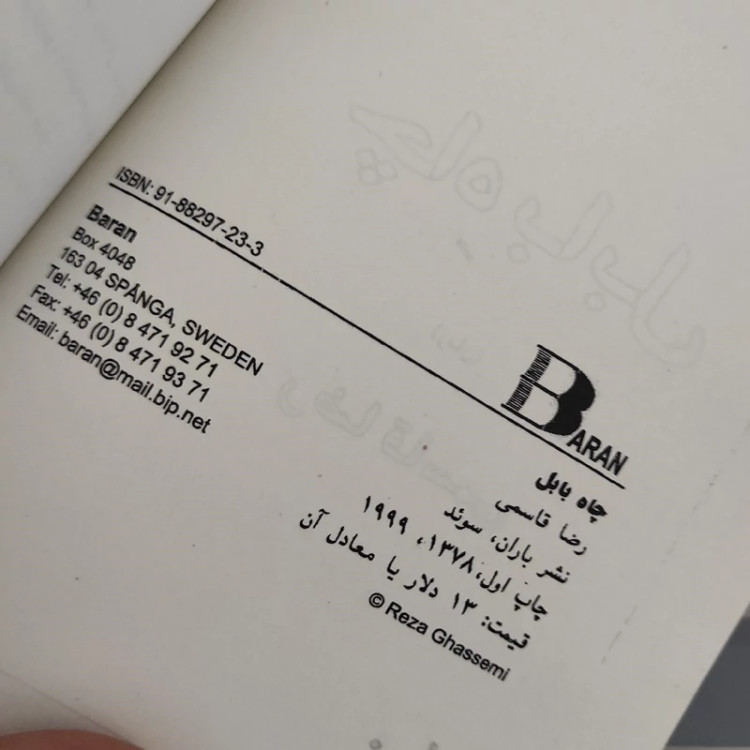 BARAN
چاه بابل
رضا قاسمی
نشر باران، سوئد
چاپ اول، ۱۳۷۸، ۱۹۹۹
قیمت: ۱۳ دلار یا معادل آن
© Reza Ghassemi
ISBN: 91-88297-23-3
Baran
Box 4048
163 04 SPÅNGA, SWEDEN
Tel: +46 (0) 8 471 92 71
Fax: +46 (0) 8 471 93 71
Email: baran@mail.bip.net
چاه بابل
رضا قاسمی